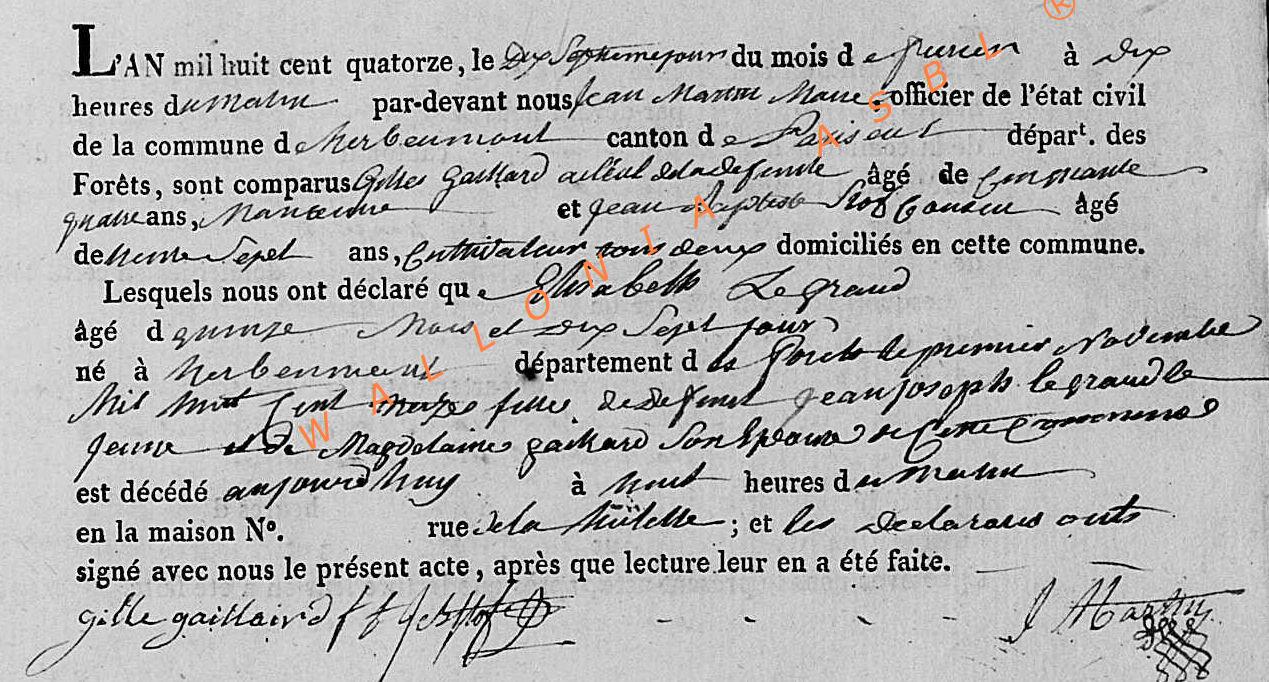 L'AN mil huit cent quatorze, le Dix Septiemejour du mois de fevrier à dix
heures du matin par-devant nous Jean Martin Maire officier de l'état civil
de la commune d herbeumont canton de Paliseul départ. des
Forêts, sont comparus Gilles Gaillard aïeul de la defunte âgé de Cinquante
quatre ans, et jean Baptiste Stof Cousin âgé
de trente Sept ans, Cultivateur tous deux domiciliés en cette commune.
Lesquels nous ont déclaré que Elisabeth Legrand
âgé d quinze Mois et dix Sept jour
né à herbeumont département d es forets le premier Novembre
Mil huit Cent douze fille de defunt jean joseph legrand le
jeune et de Magdelaine gaillard Son Epouse de Cette Commune
est décédé aujourdhuy à huit heures du matin
en la maison N°. rue de la ; et les Declarans onts
signé avec nous le présent acte, après que lecture leur en a été faite.
gille gaillaird J Martin
WALLONIA ASBL ®